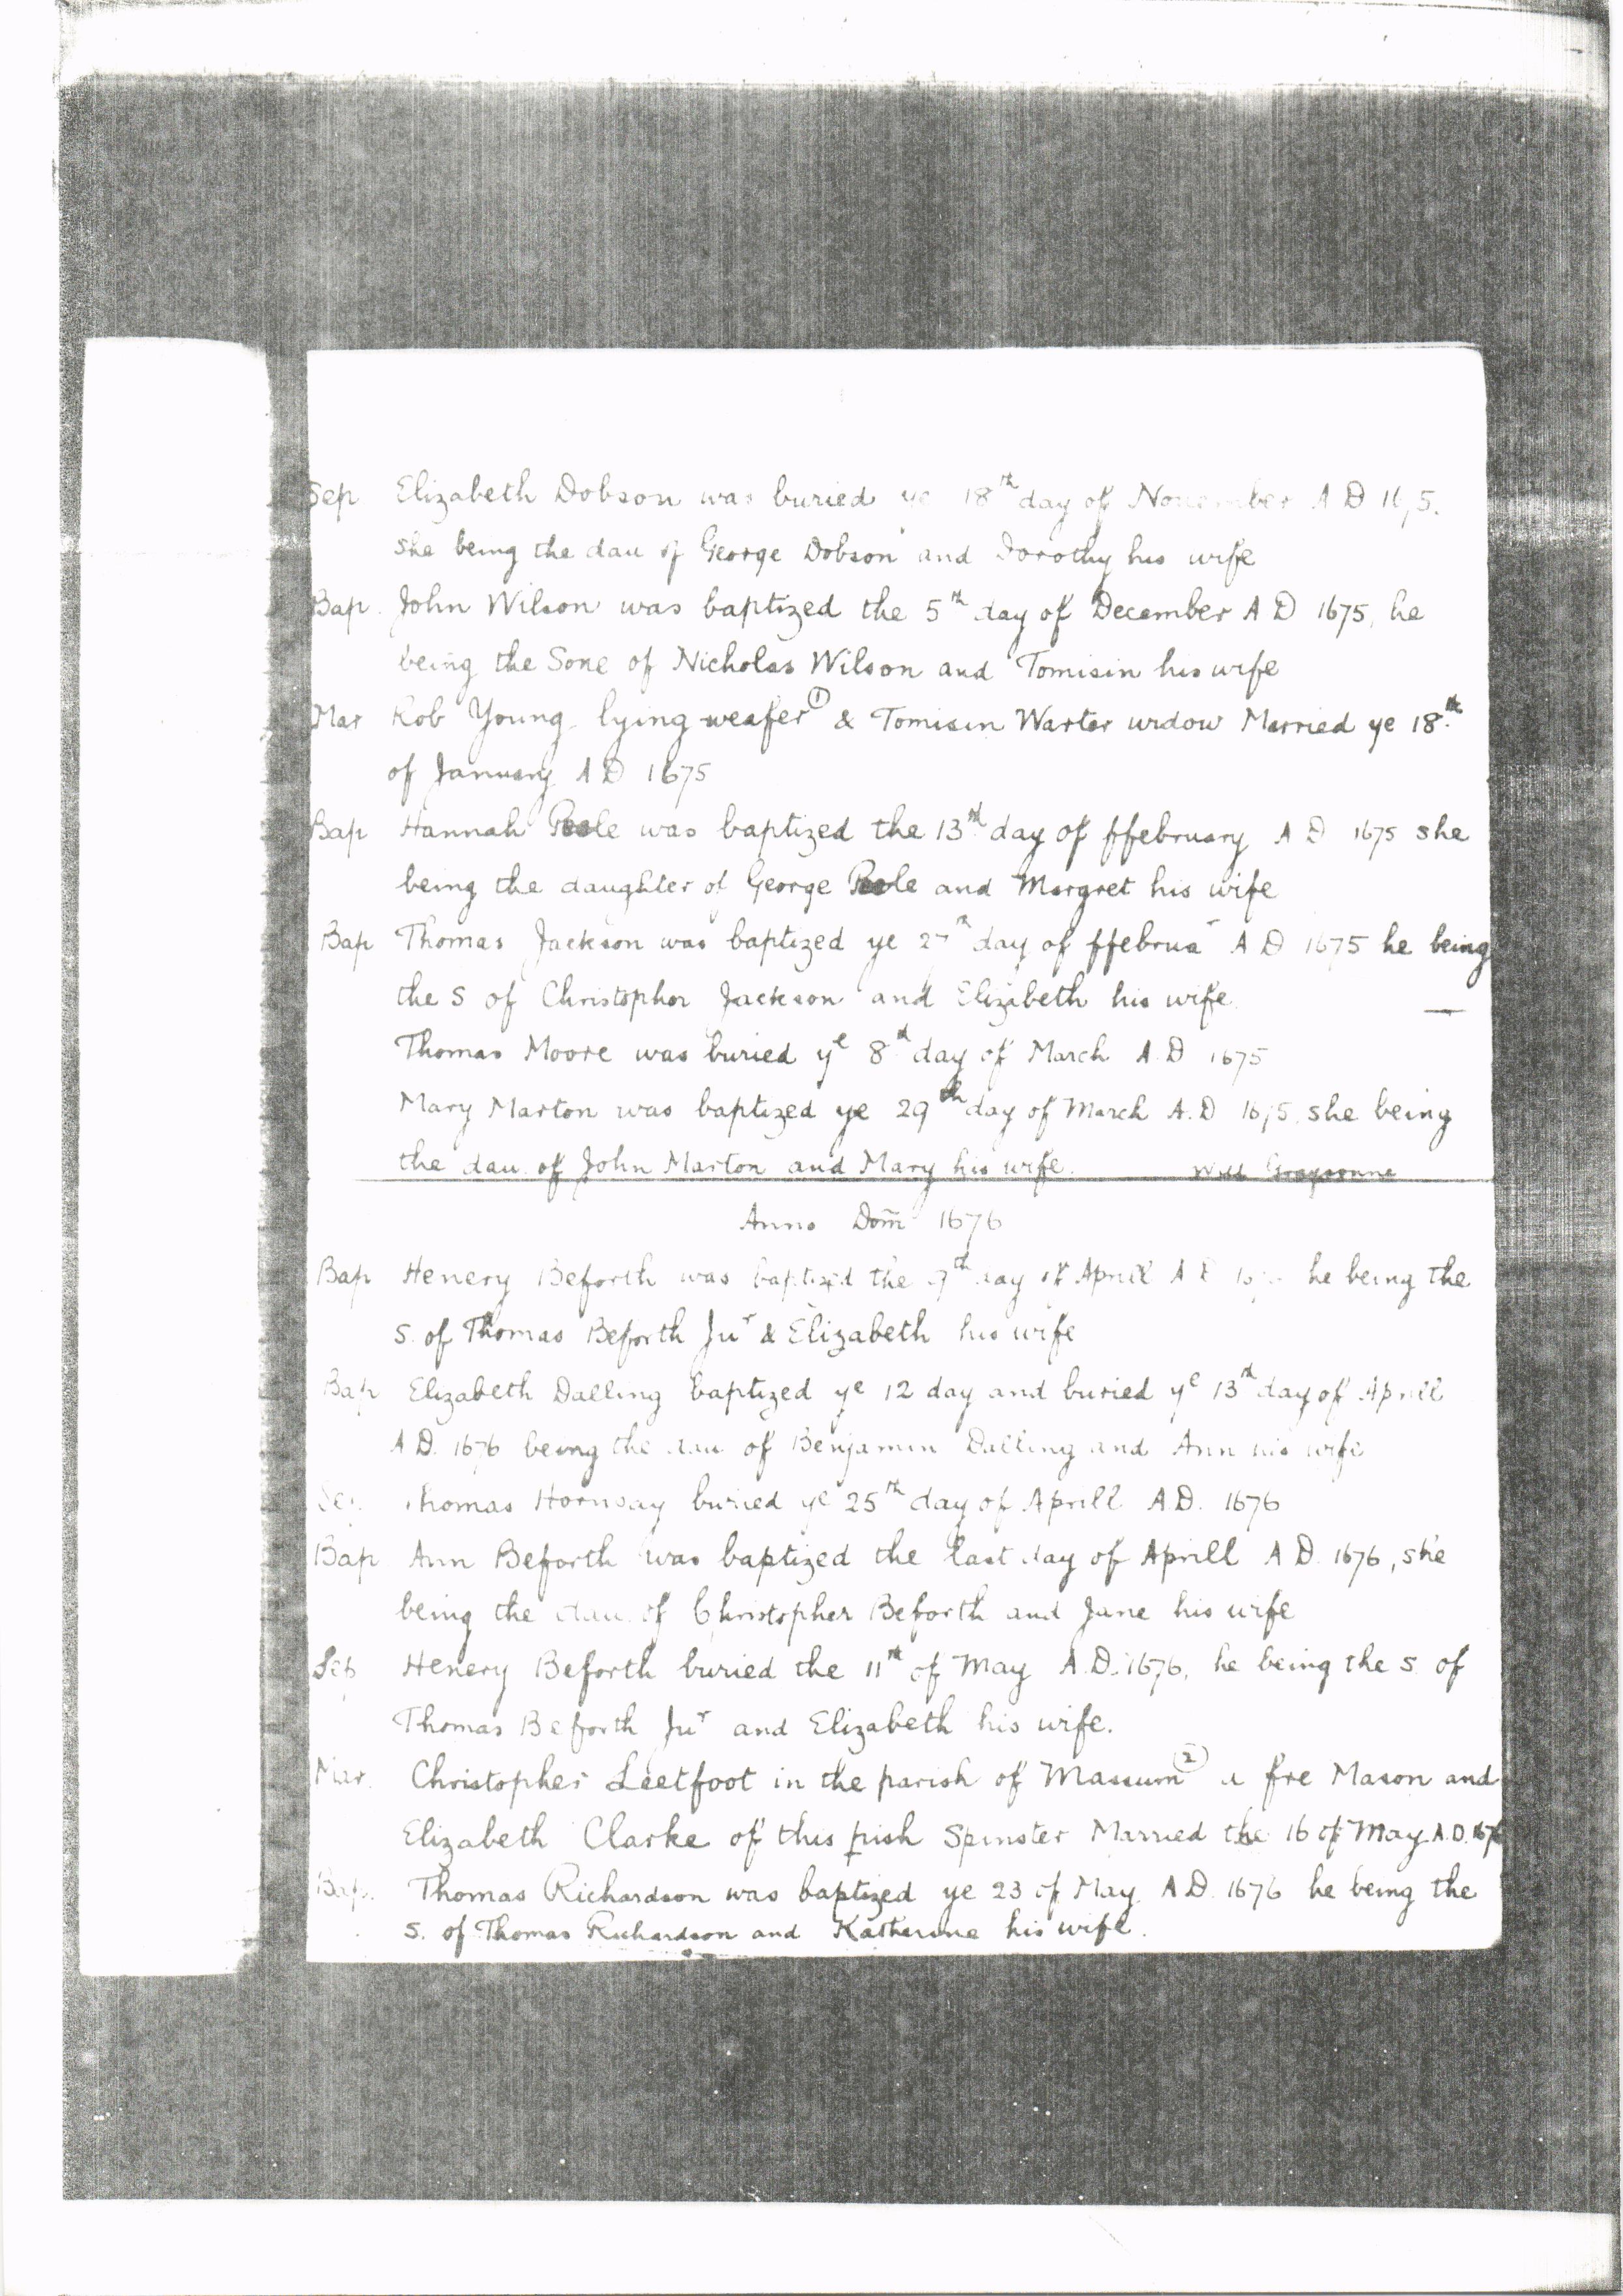 Sep Elizabeth Dobson was buried ye 18th day of November A D 1675.
she being the dau of George Dobson and Dorothy his wife
Bap. John Wilson was baptized the 5th day of December A D 1675, he
being the Sone of Nicholas Wilson and Tomisin his wife
Mar Rob Young lying weafer ① & Tomisin Warter widow Married ye 18th
of January A D 1675
Bap Hannah was baptized the 13th day of ffebruary A D 1675 she
being the daughter of George and Margret his wife
Bap Thomas Jackson was baptized ye day of ffebrua A D 1675 he being
the S of Christopher Jackson and Elizabeth his wife.
Thomas Moore was buried ye 8th day of March A.D 1675
Mary Marton was baptized ye 29th day of March A.D 1675, she being
the dau. of John Marton and Mary his wife. Will Graysonne
Anno Dom̄ 1676
Bap Henery Beforth was baptized the 9th day of April A D he being the
S. of Thomas Beforth Jur & Elizabeth his wife
Bap Elizabeth Dalling baptized ye 12 day and buried ye 13th day of Aprill
A D. 1676 being the dau of Benjamin Dalling and Ann his wife
Sep Thomas Hornsay buried ye 25th day of Aprill A.D. 1676
Bap Ann Beforth was baptized the last day of Aprill A D. 1676, she
being the dau. of Christopher Beforth and Jane his wife
Sep Henery Beforth buried the 11th of May A.D. 1676, he being the S. of
Thomas Beforth Jur and Elizabeth his wife.
Mar. Christopher Leetfoot in the parish of Massum ② a fre Mason and
Elizabeth Clarke of this pish Spinster Married the 16 of May A.D. 1676
Bap. Thomas Richardson was baptized ye 23 of May A.D. 1676 he being the
S. of Thomas Richardson and Katherine his wife.